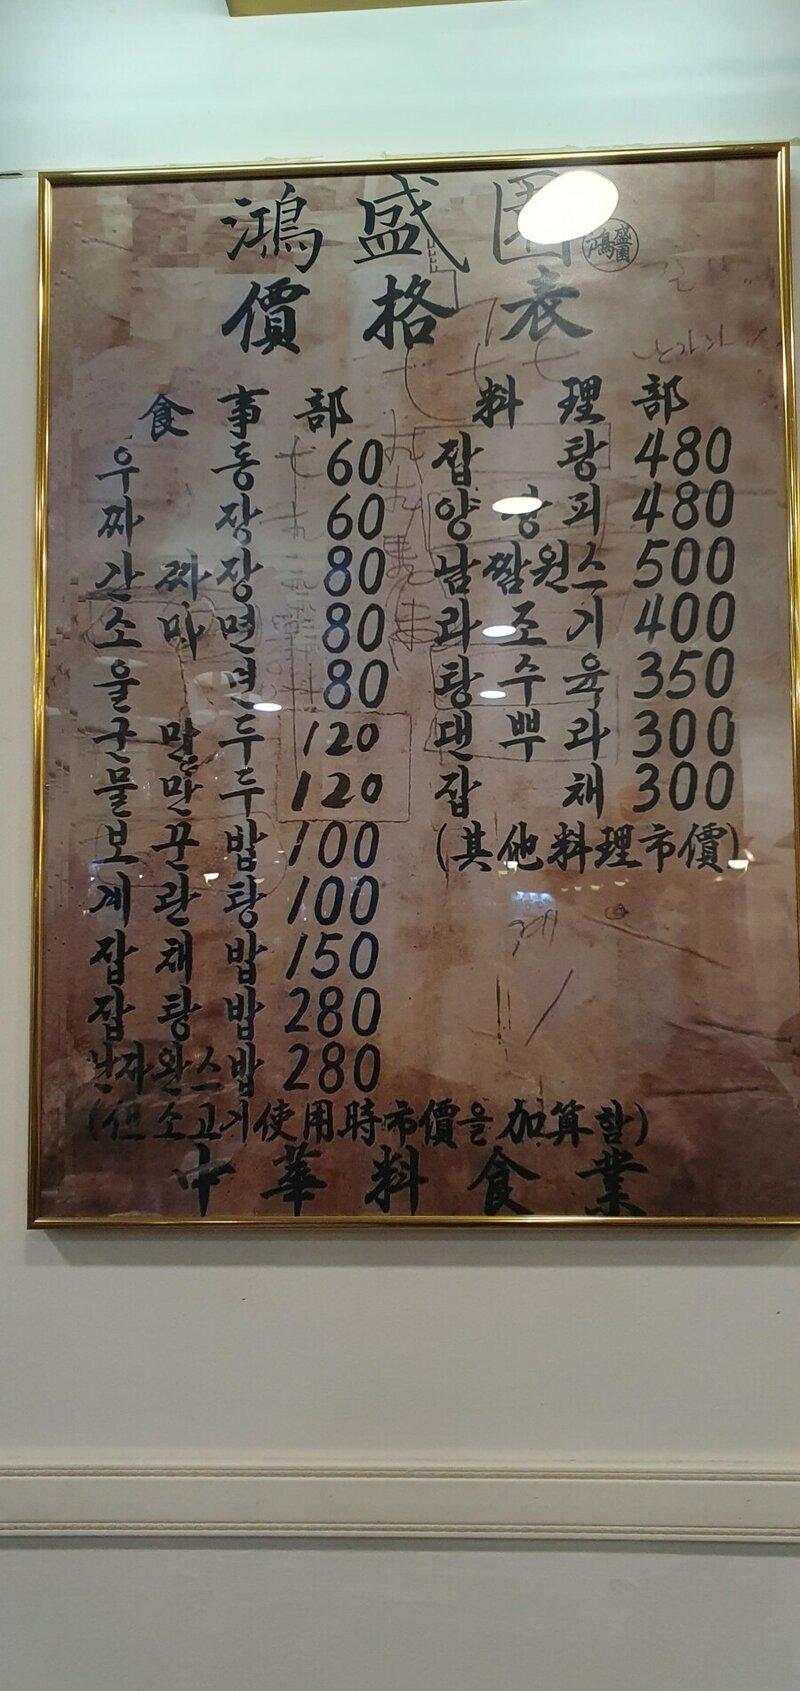 鴻盛園
鴻盛園
價格表
食事部
우동 60
짜장 60
간짜장 80
소마면 80
울면 80
군만두 120
물만두 120
보끈밥 100
계란탕 100
잡채밥 150
잡탕밥 280
난자완스밥 280
(但 소고기使用時市價을加算함)
料理部
잡탕 480
양장피 480
남짬원스 500
라조기 400
탕수육 350
댄뿌라 300
잡채 300
(其他料理市價)
中華料食業